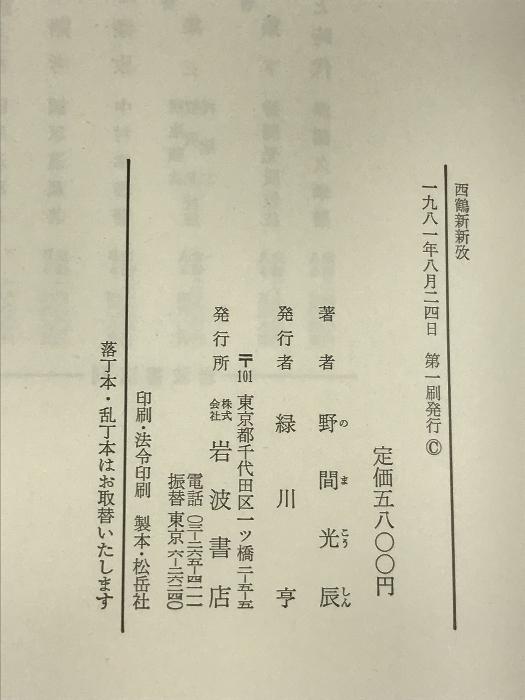 西鶴新新攷
一九八一年八月二四日 第一刷発行 ©
定価五八〇〇円
著者 野間光辰
のまこうしん
発行者 緑川亨
〒101 東京都千代田区一ツ橋二-五-五
発行所 株式会社 岩波書店
電話 〇三-二六五-四一一一
振替 東京 六-二六二四〇
印刷・法令印刷 製本・松岳社
落丁本・乱丁本はお取替いたします